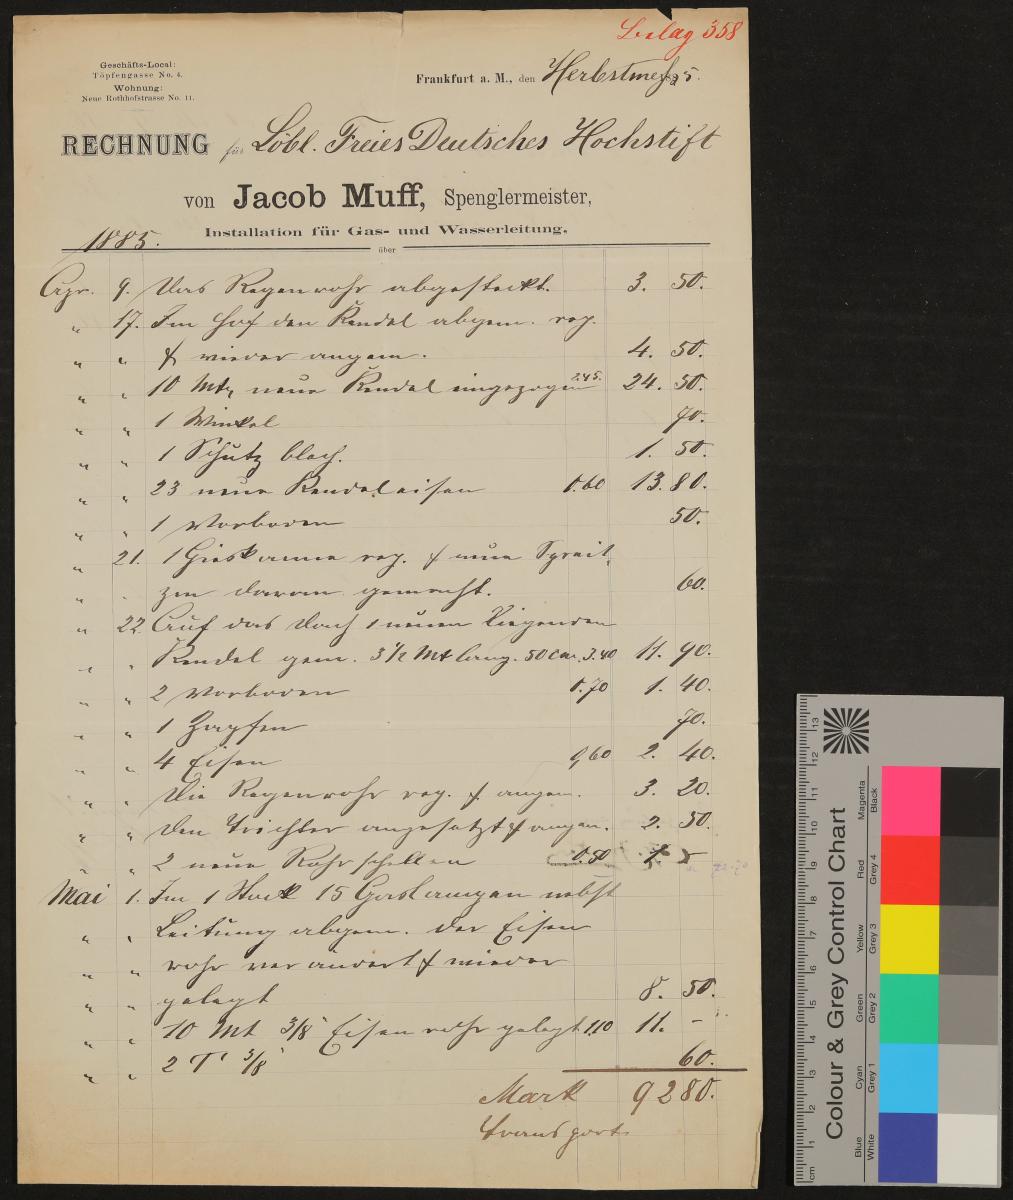 Belag 358
Geschäfts-Local:
Töpfengasse No. 4.
Wohnung:
Neue Rothhofstrasse No. 11.
Frankfurt a. M., den Herbstmeß 1885.
RECHNUNG für Löbl. Freies Deutsches Hochstift
von Jacob Muff, Spenglermeister,
Installation für Gas- und Wasserleitung,
über
1885.
Apr. 9. Das Regenrohr abgesteckt. 3. 50.
" 17. Im Hof den Kendel abgem. rep.
" " & wieder angem. 4. 50.
" " 10 Mtr neue Kendel eingezogen 2.45. 24. 50.
" " 1 Winkel 70.
" " 1 Schutz blech. 1. 50.
" " 23 neue Kendeleisen 0.60 13. 80.
" " 1 Vorboden 50.
" 21. 1 Gieskanne rep. & neue Spreit
" " zen daran gemacht. 60.
" 22. Auf das Dach 1 neuen liegenden
" " Kendel gem. 3 1/2 Mt lang. 50 cm. 3.40 11. 90.
" " 2 Vorboden 0.70 1. 40.
" " 1 Zapfen 70.
" " 4 Eisen 0,60 2. 40.
" " Die Regenrohr rep. & angem. 3. 20.
" " Den Trichter angesetzt & angem. 2. 50.
" " 2 neue Rohrschellen 0.50 1. -
Mai 1. Im 1 Stock 15 Gaslampen nebst
" " Leitung abgem. der Eisen
" " rohr verändert & wieder
" " gelegt 8. 50.
" " 10 Mt 3/8" Eisenrohr gelegt 1,10 11. -
" " 2 T 3/8" 60.
Mark 92 80.
transport.
Colour & Grey Control Chart
Blue Cyan Green Yellow Red Magenta
White Grey 1 Grey 2 Grey 3 Grey 4 Black
cm 1 2 3 4 5 6 7 8 9 10 11 12 13